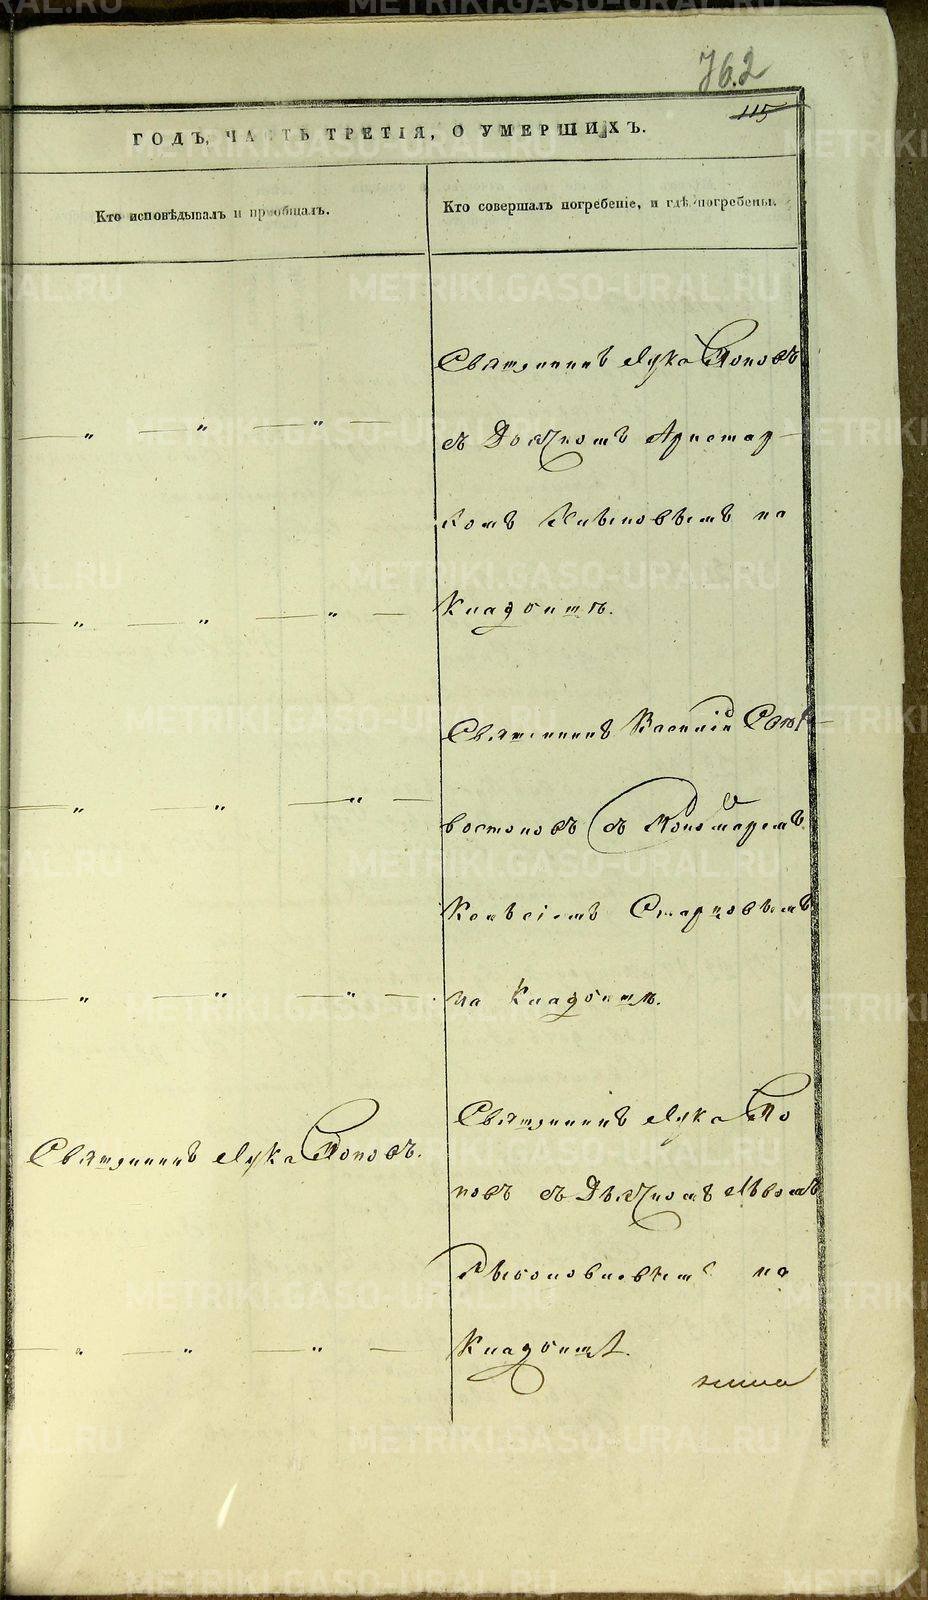 762
115
ГОДЪ, ЧАСТЬ ТРЕТІЯ, О УМЕРШИХЪ.
Кто исповѣдывалъ и пріобщалъ.
Кто совершалъ погребеніе, и гдѣ погребены.
Священникъ Лука Поповъ
съ Дьячкомъ Аристар-
хомъ на
Кладбищѣ.
Священникъ Василій Свято-
востоковъ съ Пономаремъ
Алексіемъ Старковымъ
на Кладбищѣ.
Священникъ Лука Поповъ.
Священникъ Лука По
повъ съ Дьячкомъ Львомъ
на
Кладбищѣ.
METRIKI.GASO-URAL.RU